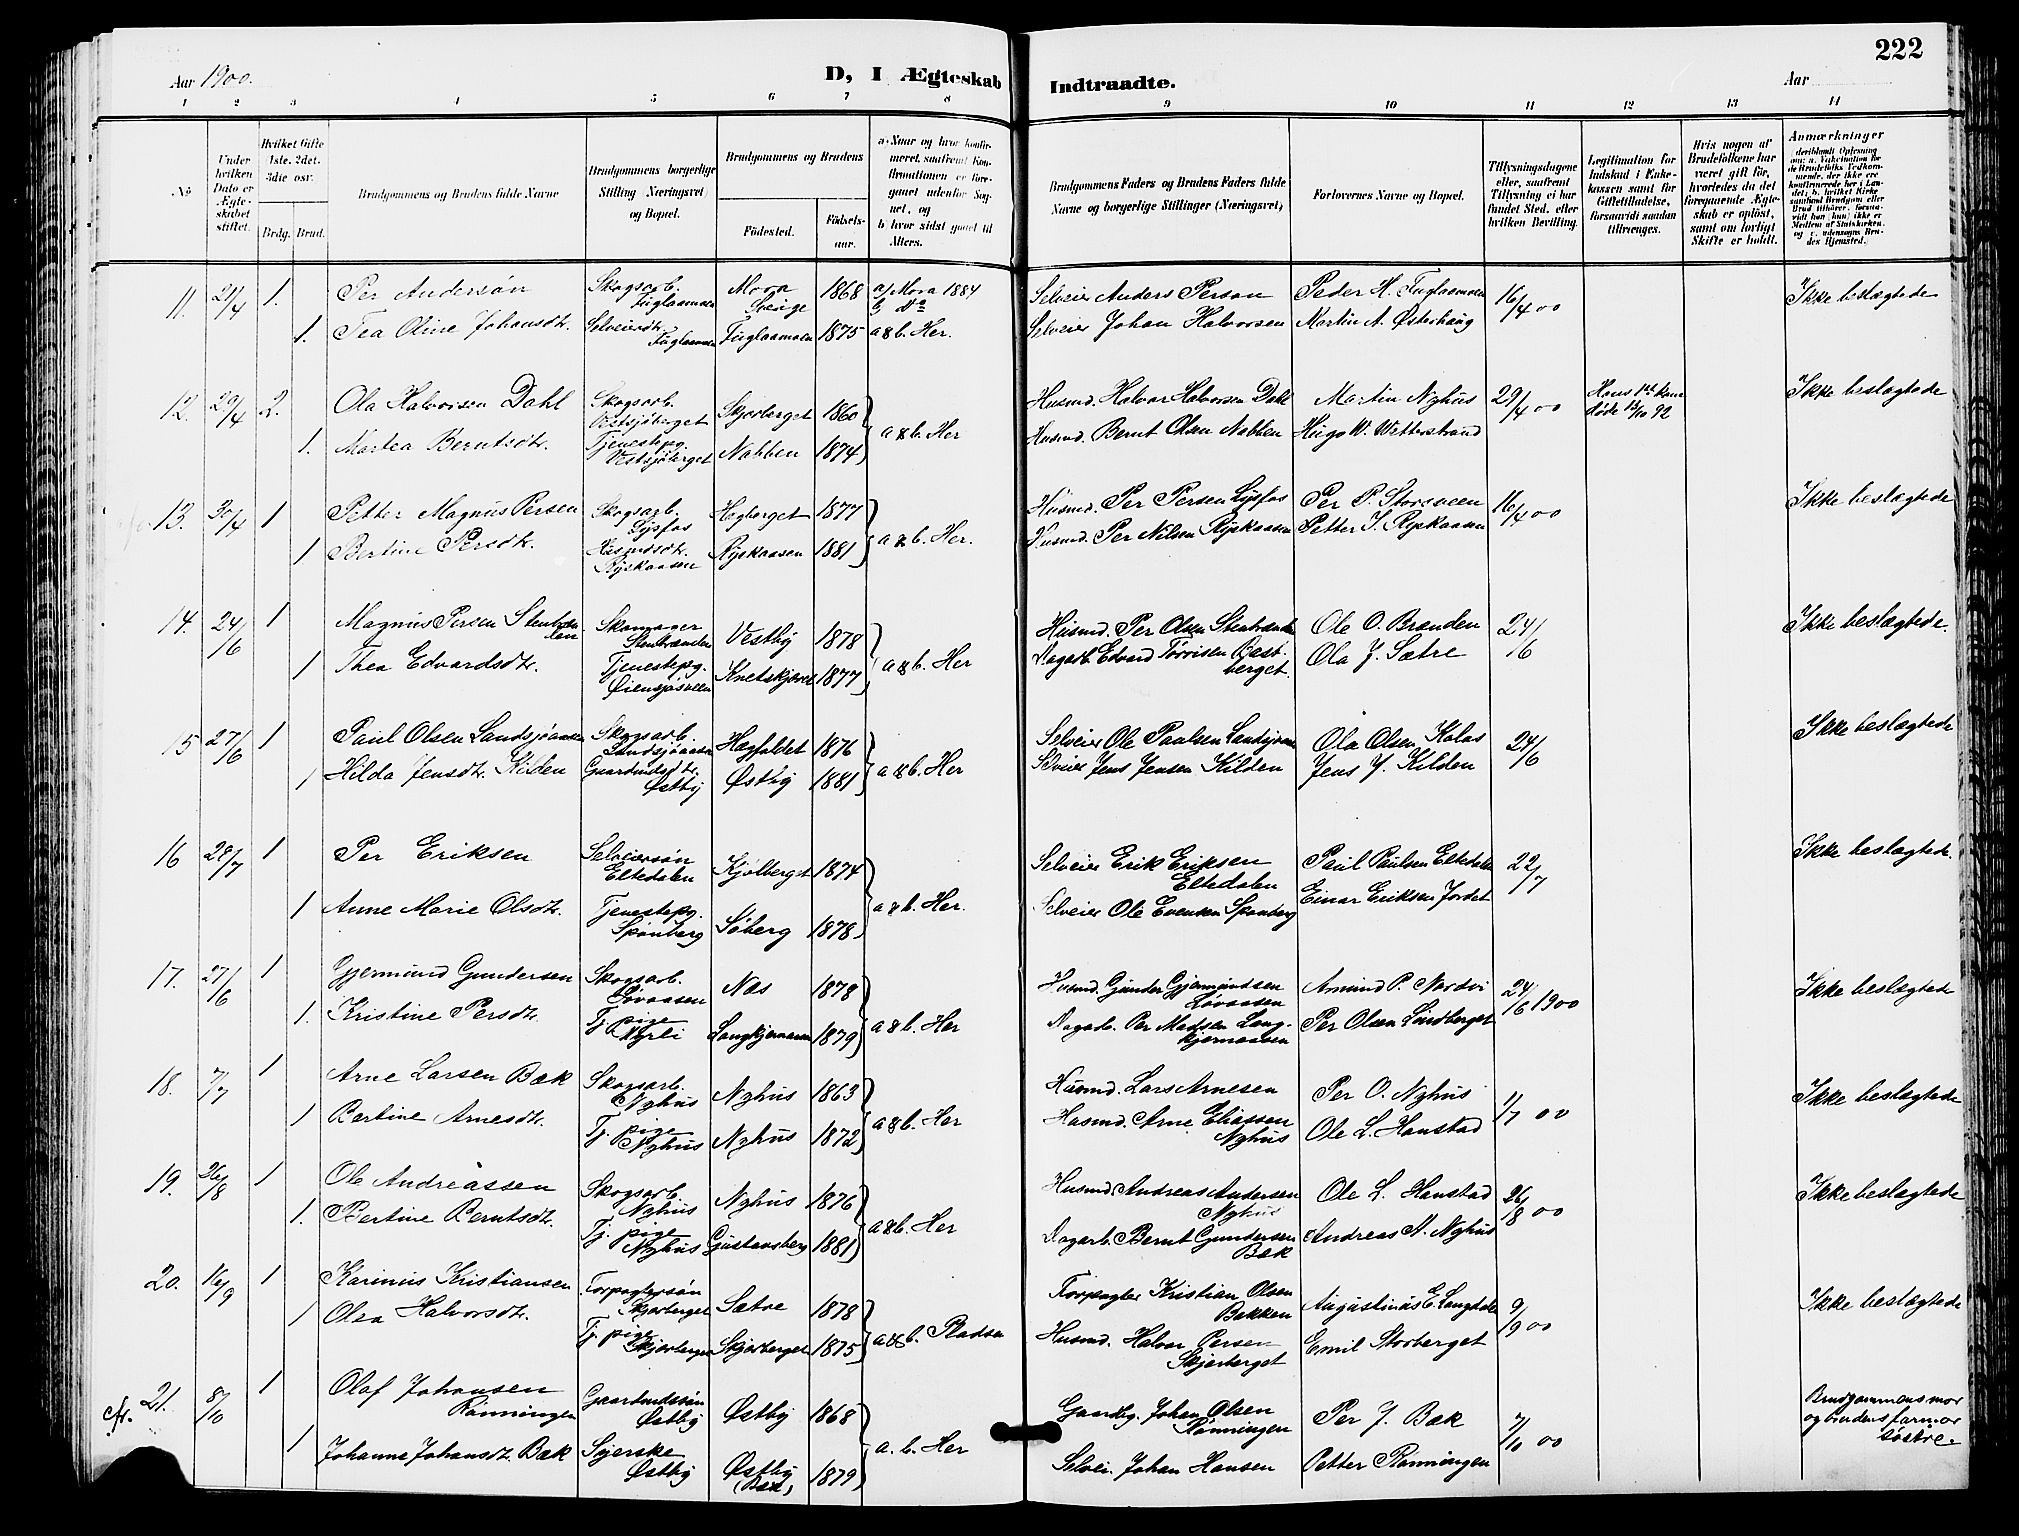 222
Aar 1900.
D, I Ægteskab Indtraadte.
Aar
1 2 3 4 5 6 7 8 9 10 11 12 13 14
No
Under hvilken Dato er Ægteskabet stiftet.
Hvilket Gifte 1ste. 2det. 3die osv.
Brdg. Brud.
Brudgommens og Brudens fulde Navne
Brudgommens borgerlige Stilling (Næringsvei) og Bopæl.
Brudgommens og Brudens
Födested.
Födsels-aar.
a) Naar og hvor konfirmeret, saafremt Konfirmationen er foregaaet udenfor Sognet, og b hvor sidst gaaet til Alters.
Brudgommens Faders og Brudens Faders fulde Navne og borgerlige Stillinger (Næringsvei)
Forlovernes Navne og Bopæl.
Tillysningsdagene eller, saafremt Tillysning ei har fundet Sted, efter hvilken Bevilling.
Legitimation for Indskud i Enkekassen samt for Giftetilladelse, forsaavidt saadan tiltrænges.
Hvis nogen af Brudefolkene har været gift för, hvorledes da det foregaaende Ægteskab er oplöst, samt om lovligt Skifte er holdt.
Anmærkninger
11. 21/4 1. Per Andersön Skogsarb. Fuglaamoen Mora Sverige 1868 a) Mora 1884 b) Do Selveier Anders Person Peder H. Fuglaamoen 16/4 00 Ikke beslægtede
1. Tea Oline Johansdt. Selveierdt. Fuglaamoen Fuglaamoen 1875 a&b. Her. Selveier Johan Halvorsen Martin A. Østerhaug
12. 29/4 2. Ola Halvorsen Dahl Skogsarb. Vestsjöberget Skjærberget 1860 a&b. Her Husmd. Halvor Halvorsen Dahl Martin Nyhus 29/4 00 Hans 1ste kone döde 13/10 92 Ikke beslægtede
1. Martea Berntsdt. Tjenestepg. Vestsjöberget Nabben 1874 Husmd. Bernt Olsen Nabben Hugo W. Wetterstrand
13. 30/4 1 Petter Magnus Persen Skogsarb. Lysfos Hegberget 1877 a&b. Her. Husmd. Per Persen Lysfos Per P. Storsveen 16/4 00 Ikke beslægtede
1 Bertine Persdt. Husmdsdt. Ryskaasen Ryskaasen 1881 Husmd. Per Nilsen Ryskaasen Petter J. Ryskaasen
14. 24/6 1 Magnus Persen Skomager Stenbrænden Vestby 1878 a&b. Her Husmd. Per Olsen Stenbrænden Ole O. Brænden 24/6 Ikke beslægtede.
1 Thea Edvardsdt. Tjenestepg. Øiensjøsveen 1877 Dagarb. Edvard Bastberget. Ola J. Sætre
15 27/6 1 Paul Olsen Landsjöaasen Skogsarb. Landsjöaasen Hægfaldet 1876 a&b. Her Selveier Ole Paulsen Landsjöaasen Ola Olsen Kolos 24/6 Ikke beslægtede
1 Hilda Jensdt. Kilden Gaardmdsdt. Østby Østby 1881 Selveier Jens Jensen Kilden Jens J. Kilden
16 28/7 1 Per Eriksen Selveiersön Eltedalen Kjölberget 1874 a&b. Her. Selveier Erik Eriksen Eltedalen Paul Paulsen Eltedalen 22/7 Ikke beslægtede.
1 Anne Marie Olsdt. Tjenestepg. Spönberg Söberg 1878 Selveier Ole Evensen Spönberg Einar Eriksen Jordet
17. 27/6 1 Gjermund Gundersen Skogsarb. Lövaasen Næs 1878 a&b. Her Husmd. Gunder Gjermundsen Lövaasen Amund P. Nordvi 24/6 1900 Ikke beslægtede
1. Kristine Persdt. Tj. pige Nyrli Langkjernaasen 1879 Dagarb. Per Madsen Langkjernaasen Per Olsen Lindberget
18. 7/7 1 Arne Larsen Bæk Skogsarb. Nyhus Nyhus 1863 a&b. Her Husmd. Lars Arnesen Per O. Nyhus 1/7 00 Ikke beslægtede
1 Bertine Arnesdt. Tj. pige Nyhus Nyhus 1872 Husmd. Arne Eliassen Nyhus Ole L. Hanstad
19. 26/8 1 Ole Andreassen Skogsarb. Nyhus Nyhus 1876 a&b. Her Husmd. Andreas Andersen Nyhus Ole L. Hanstad 26/8 00 Ikke beslægtede
1. Bertine Berntsdt. Tj. pige Nyhus Gustavsberg 1881 Dagarb. Bernt Gundersen Bæk Andreas A. Nyhus
20. 16/9 1 Karinius Kristiansen Forpagtersön Skjærberget Sætre 1878 a&b. Pladsen Forpagter Kristian Olsen Bakken Augustinus E. Langdal 9/9 00 Ikke beslægtede
1 Olea Halvorsdt. Tj. pige Skjærberget Skjærberget 1875 Husmd. Halvor Persen Skjærberget Emil Storberget
21. 8/10 1 Olaf Johansen Rönningen Gaardmdssön Østby Østby 1868 a. b. Her Gaardbg. Johan Olsen Rönningen Per J. Bæk 7/10 00 Brudgommens mor og brudens farmor söstre.
1 Johanne Johansdt. Bæk Syerske Østby Østby (Bæk) 1879 Selvei. Johan Hansen Petter Rönningen